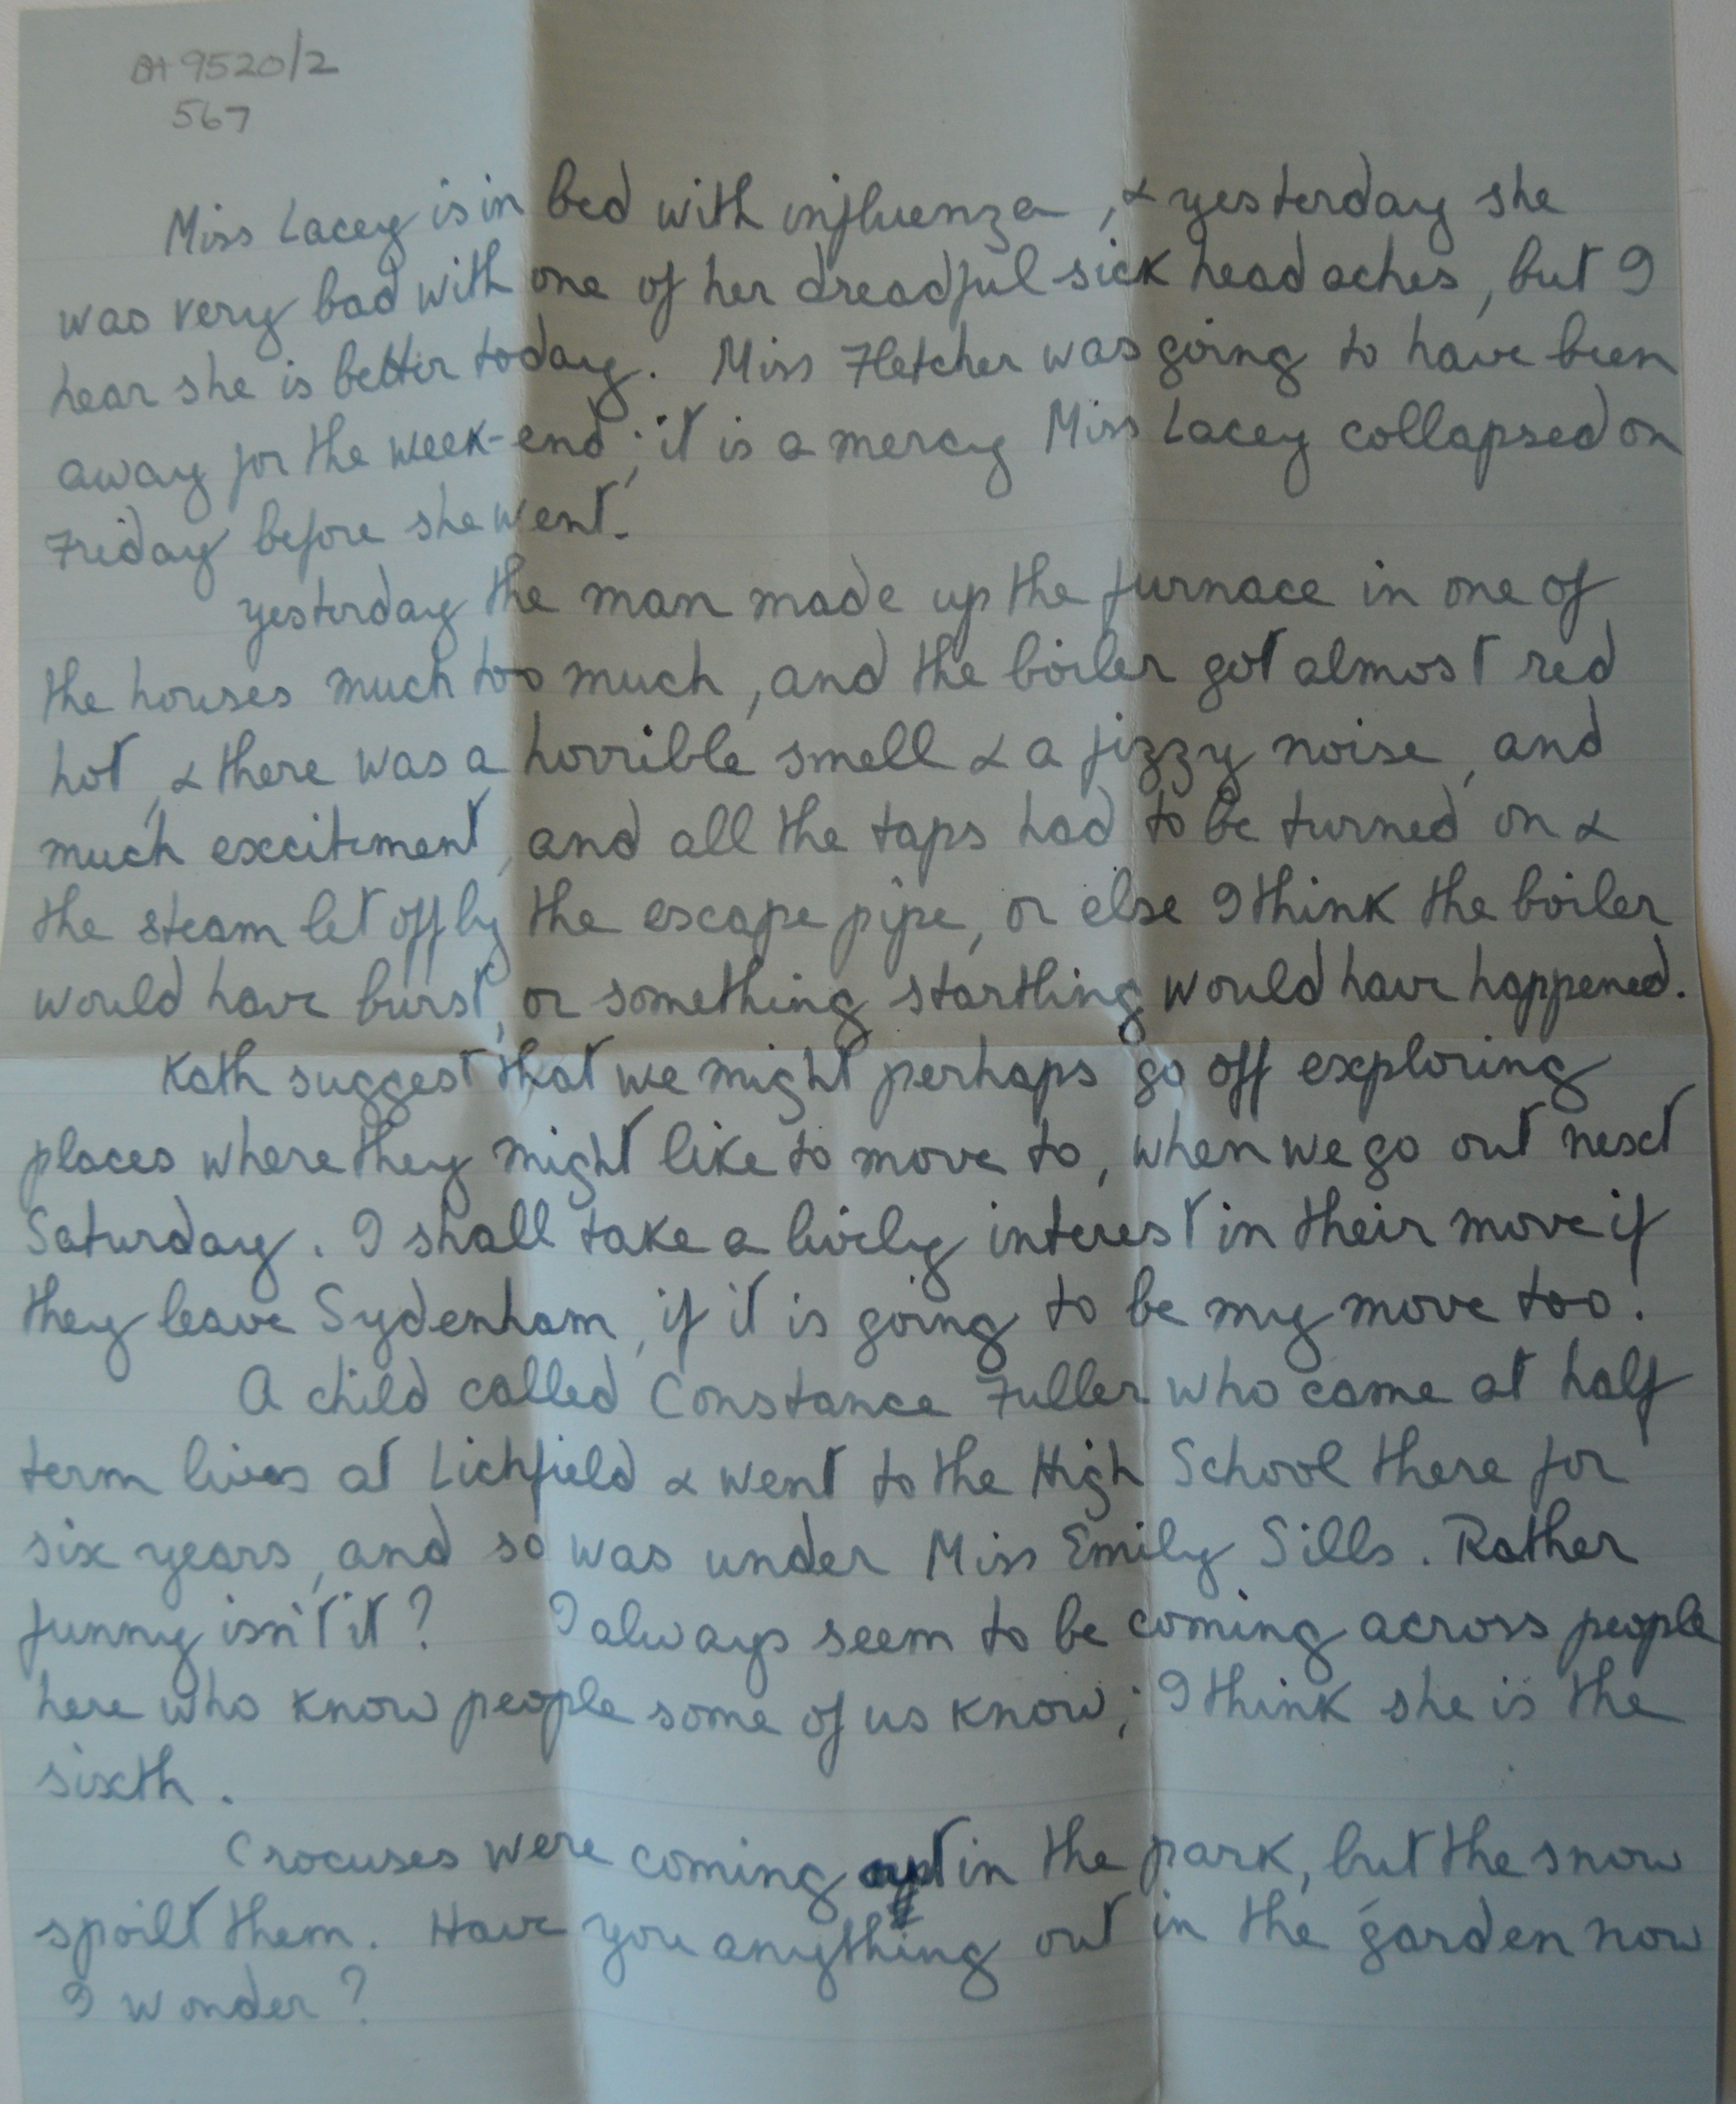 BA 9520/2
567
Miss Lacey is in bed with influenza, & yesterday she
was very bad with one of her dreadful sick headaches, but I
hear she is better today. Miss Fletcher was going to have been
away for the week-end; it is a mercy Miss Lacey collapsed on
Friday before she went.
Yesterday the man made up the furnace in one of
the houses much too much, and the boiler got almost red
hot, & there was a horrible smell & a fizzy noise, and
much excitement, and all the taps had to be turned on &
the steam let off by the escape pipe, or else I think the boiler
would have burst, or something startling would have happened.
Kath suggest that we might perhaps go off exploring
places where they might like to move to, when we go out next
Saturday. I shall take a lively interest in their move if
they leave Sydenham, if it is going to be my move too!
A child called Constance Fuller who came at half
term lives at Lichfield & went to the High School there for
six years, and so was under Miss Emily Sills. Rather
funny isn't it? I always seem to be coming across people
here who know people some of us know; I think she is the
sixth.
Crocuses were coming out in the park, but the snow
spoilt them. Have you anything out in the garden now
I wonder?